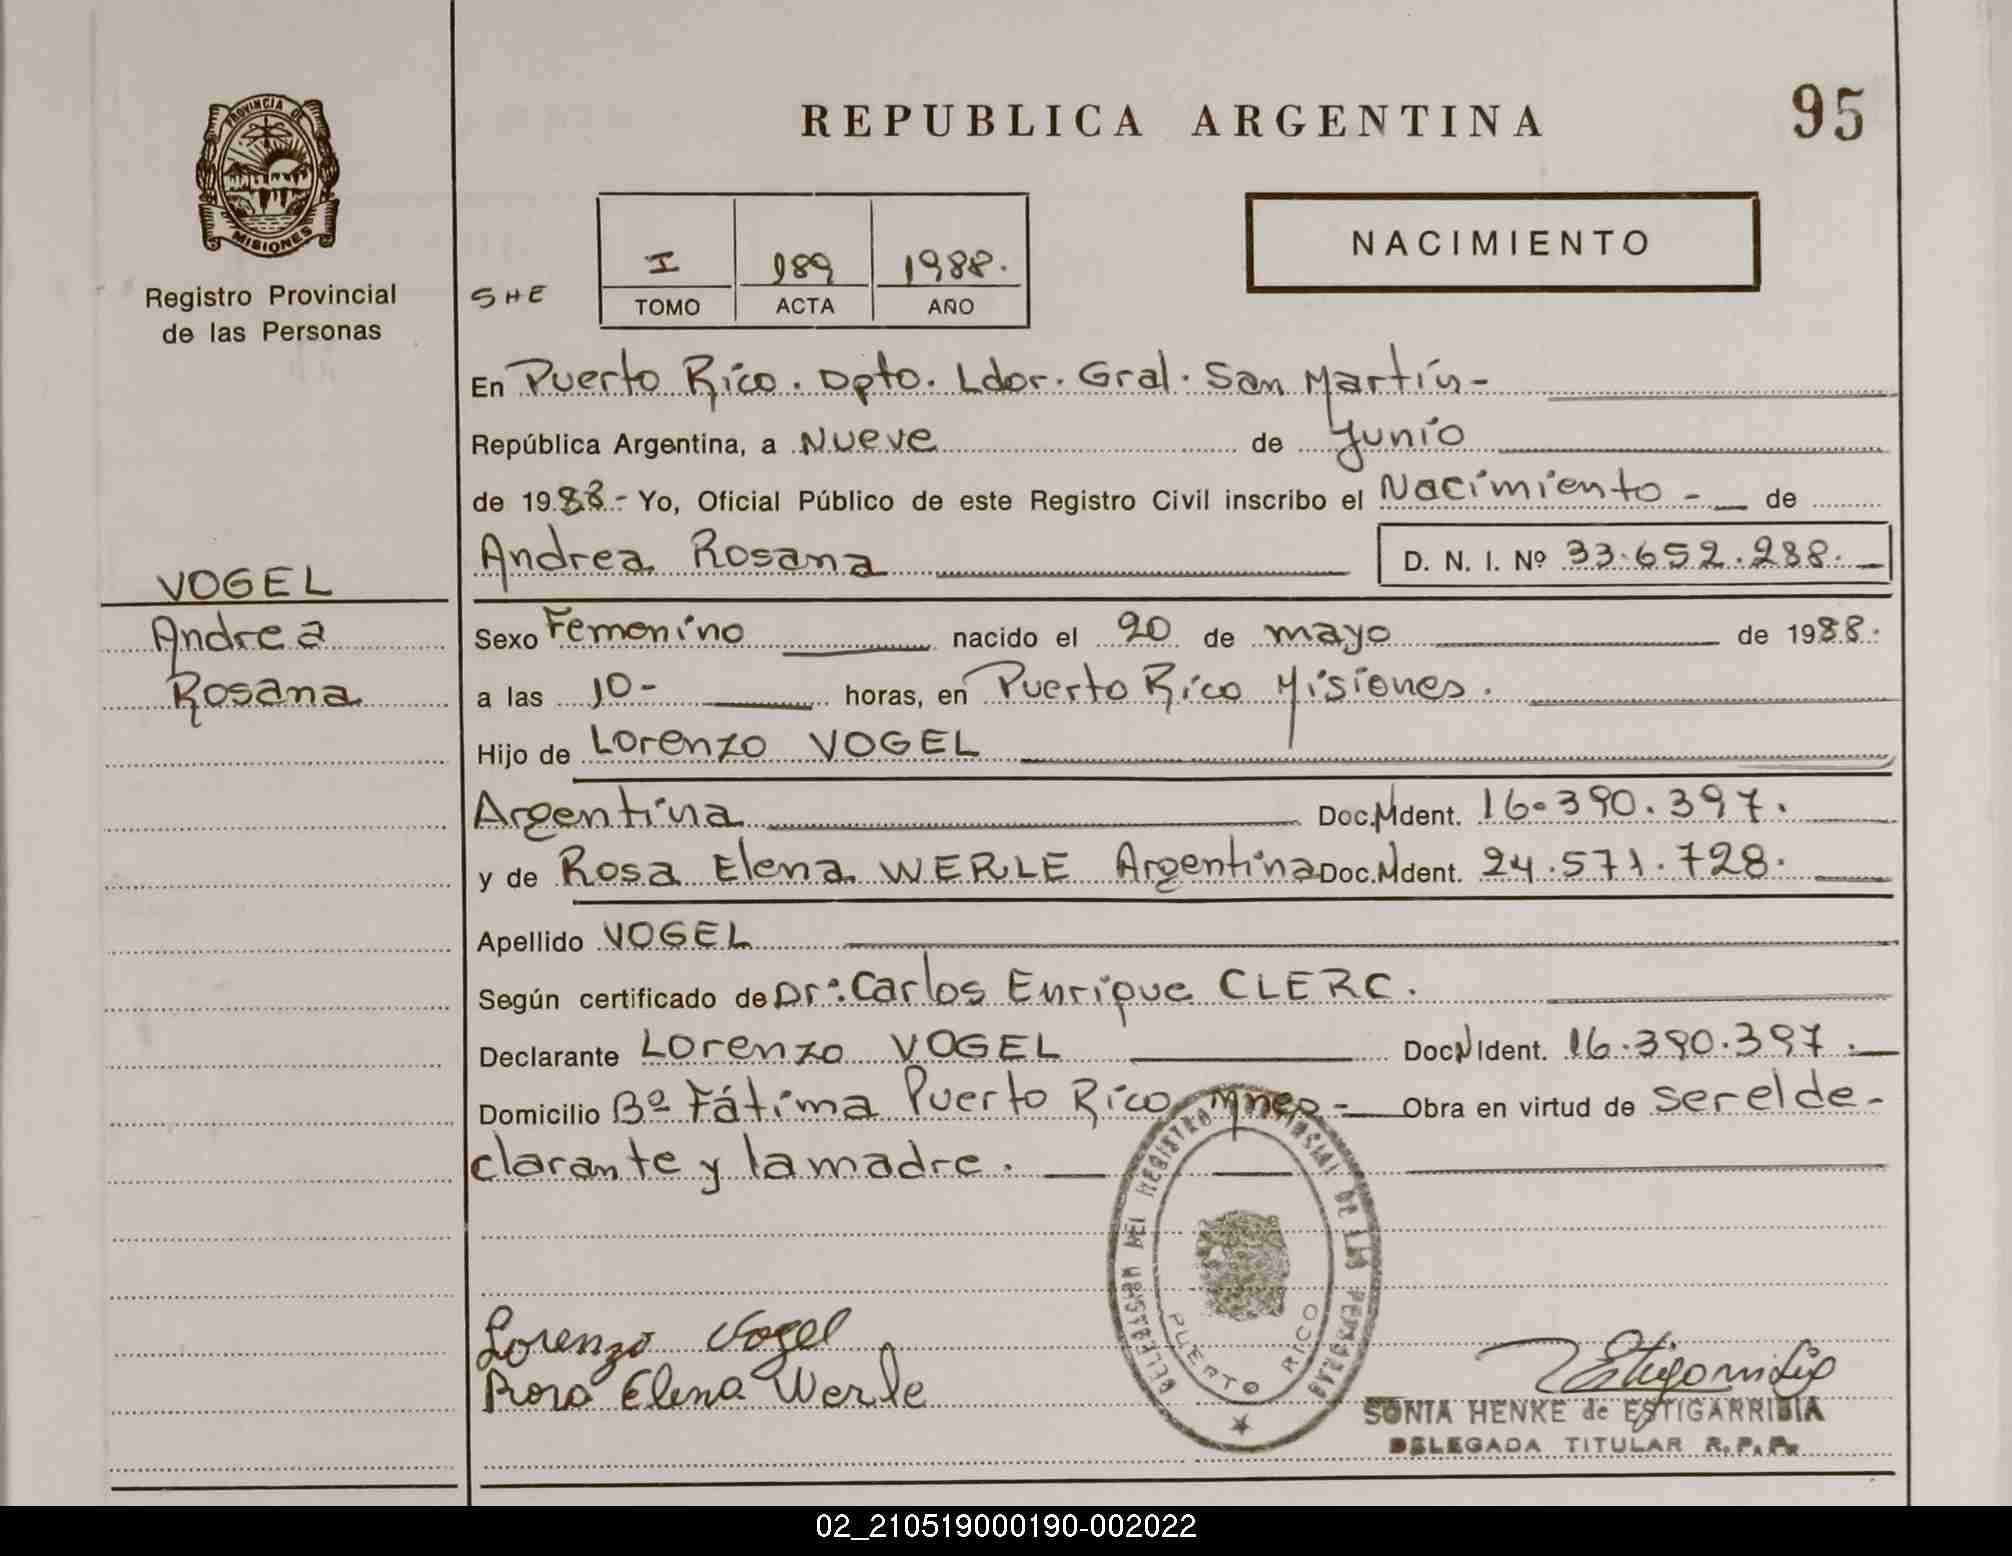 PROVINCIA DE
MISIONES
Registro Provincial
de las Personas
REPUBLICA ARGENTINA
95
NACIMIENTO
SHE
I 189 1988.
TOMO ACTA AÑO
En Puerto Rico. Dpto. Ldor. Gral. San Martín-
República Argentina, a Nueve de Junio
de 1988.- Yo, Oficial Público de este Registro Civil inscribo el Nacimiento - de
Andrea Rosana D. N. I. Nº 33.652.288.
VOGEL
Andrea
Rosana
Sexo Femenino nacido el 20 de mayo de 1988.
a las 10- horas, en Puerto Rico Misiones.
Hijo de Lorenzo VOGEL
Argentina Doc.NIdent. 16.390.397.
y de Rosa Elena WERLE Argentina Doc.NIdent. 24.571.728.
Apellido VOGEL
Según certificado de Dr. Carlos Enrique CLERC.
Declarante Lorenzo VOGEL Doc.NIdent. 16.390.397.
Domicilio Bº Fátima Puerto Rico Mnes- Obra en virtud de ser el de-
clarante y la madre.
DELEGACION DEL REGISTRO PROVINCIAL DE LAS PERSONAS
PUERTO RICO
Lorenzo Vogel
Rosa Elena Werle
SONIA HENKE de ESTIGARRIBIA
DELEGADA TITULAR R. P. P.
02_210519000190-002022